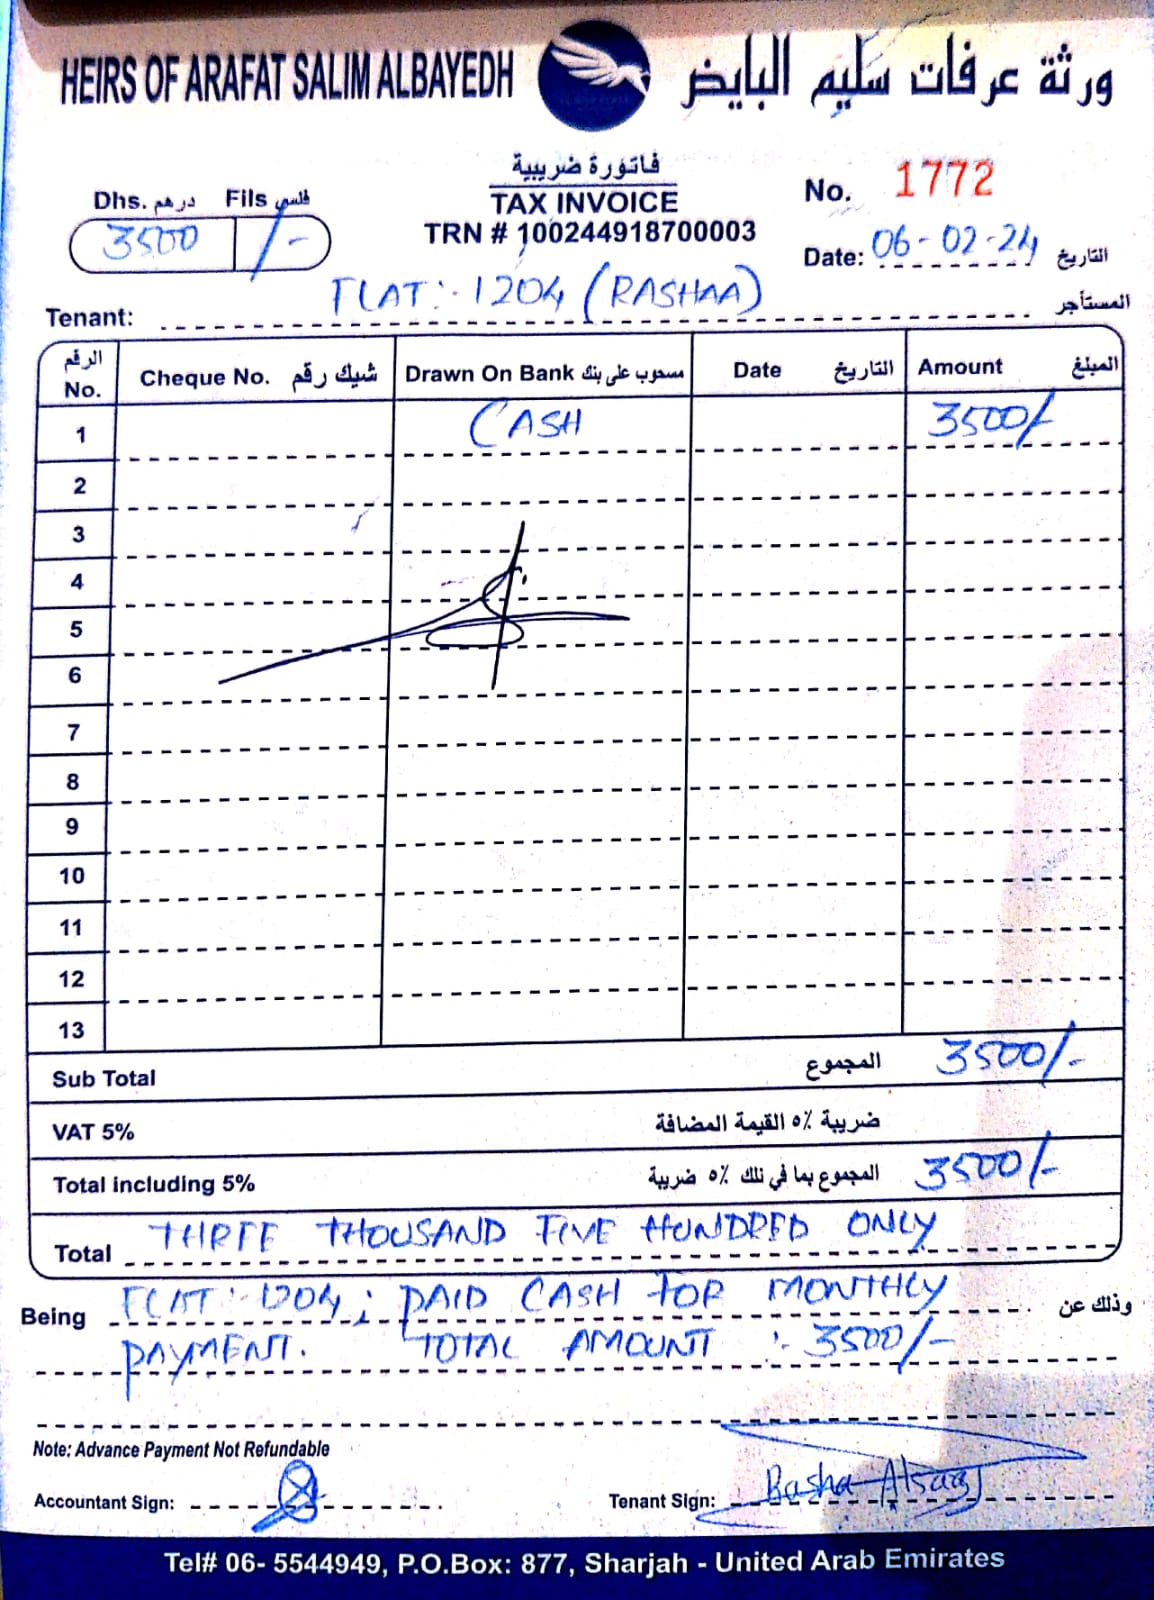 HEIRS OF ARAFAT SALIM ALBAYEDH ورثة عرفات سليم البايض
فاتورة ضريبية
TAX INVOICE
TRN # 100244918700003
Dhs. درهم Fils فلس
3500 /-
No. 1772
Date: 06-02-24 التاريخ
Tenant: FLAT:- 1204 (RASHAA) المستأجر
الرقم No. Cheque No. شيك رقم Drawn On Bank مسحوب على بنك Date التاريخ Amount المبلغ
1 CASH 3500/-
2
3
4
5
6
7
8
9
10
11
12
13
Sub Total المجموع 3500/-
VAT 5% ضريبة ٥٪ القيمة المضافة
Total including 5% المجموع بما في ذلك ٥٪ ضريبة 3500/-
Total THREE THOUSAND FIVE HUNDRED ONLY
Being FLAT:- 1204; PAID CASH FOR MONTHLY وذلك عن
PAYMENT. TOTAL AMOUNT :- 3500/-
Note: Advance Payment Not Refundable
Accountant Sign: Tenant Sign: Rasha
Tel# 06- 5544949, P.O.Box: 877, Sharjah - United Arab Emirates